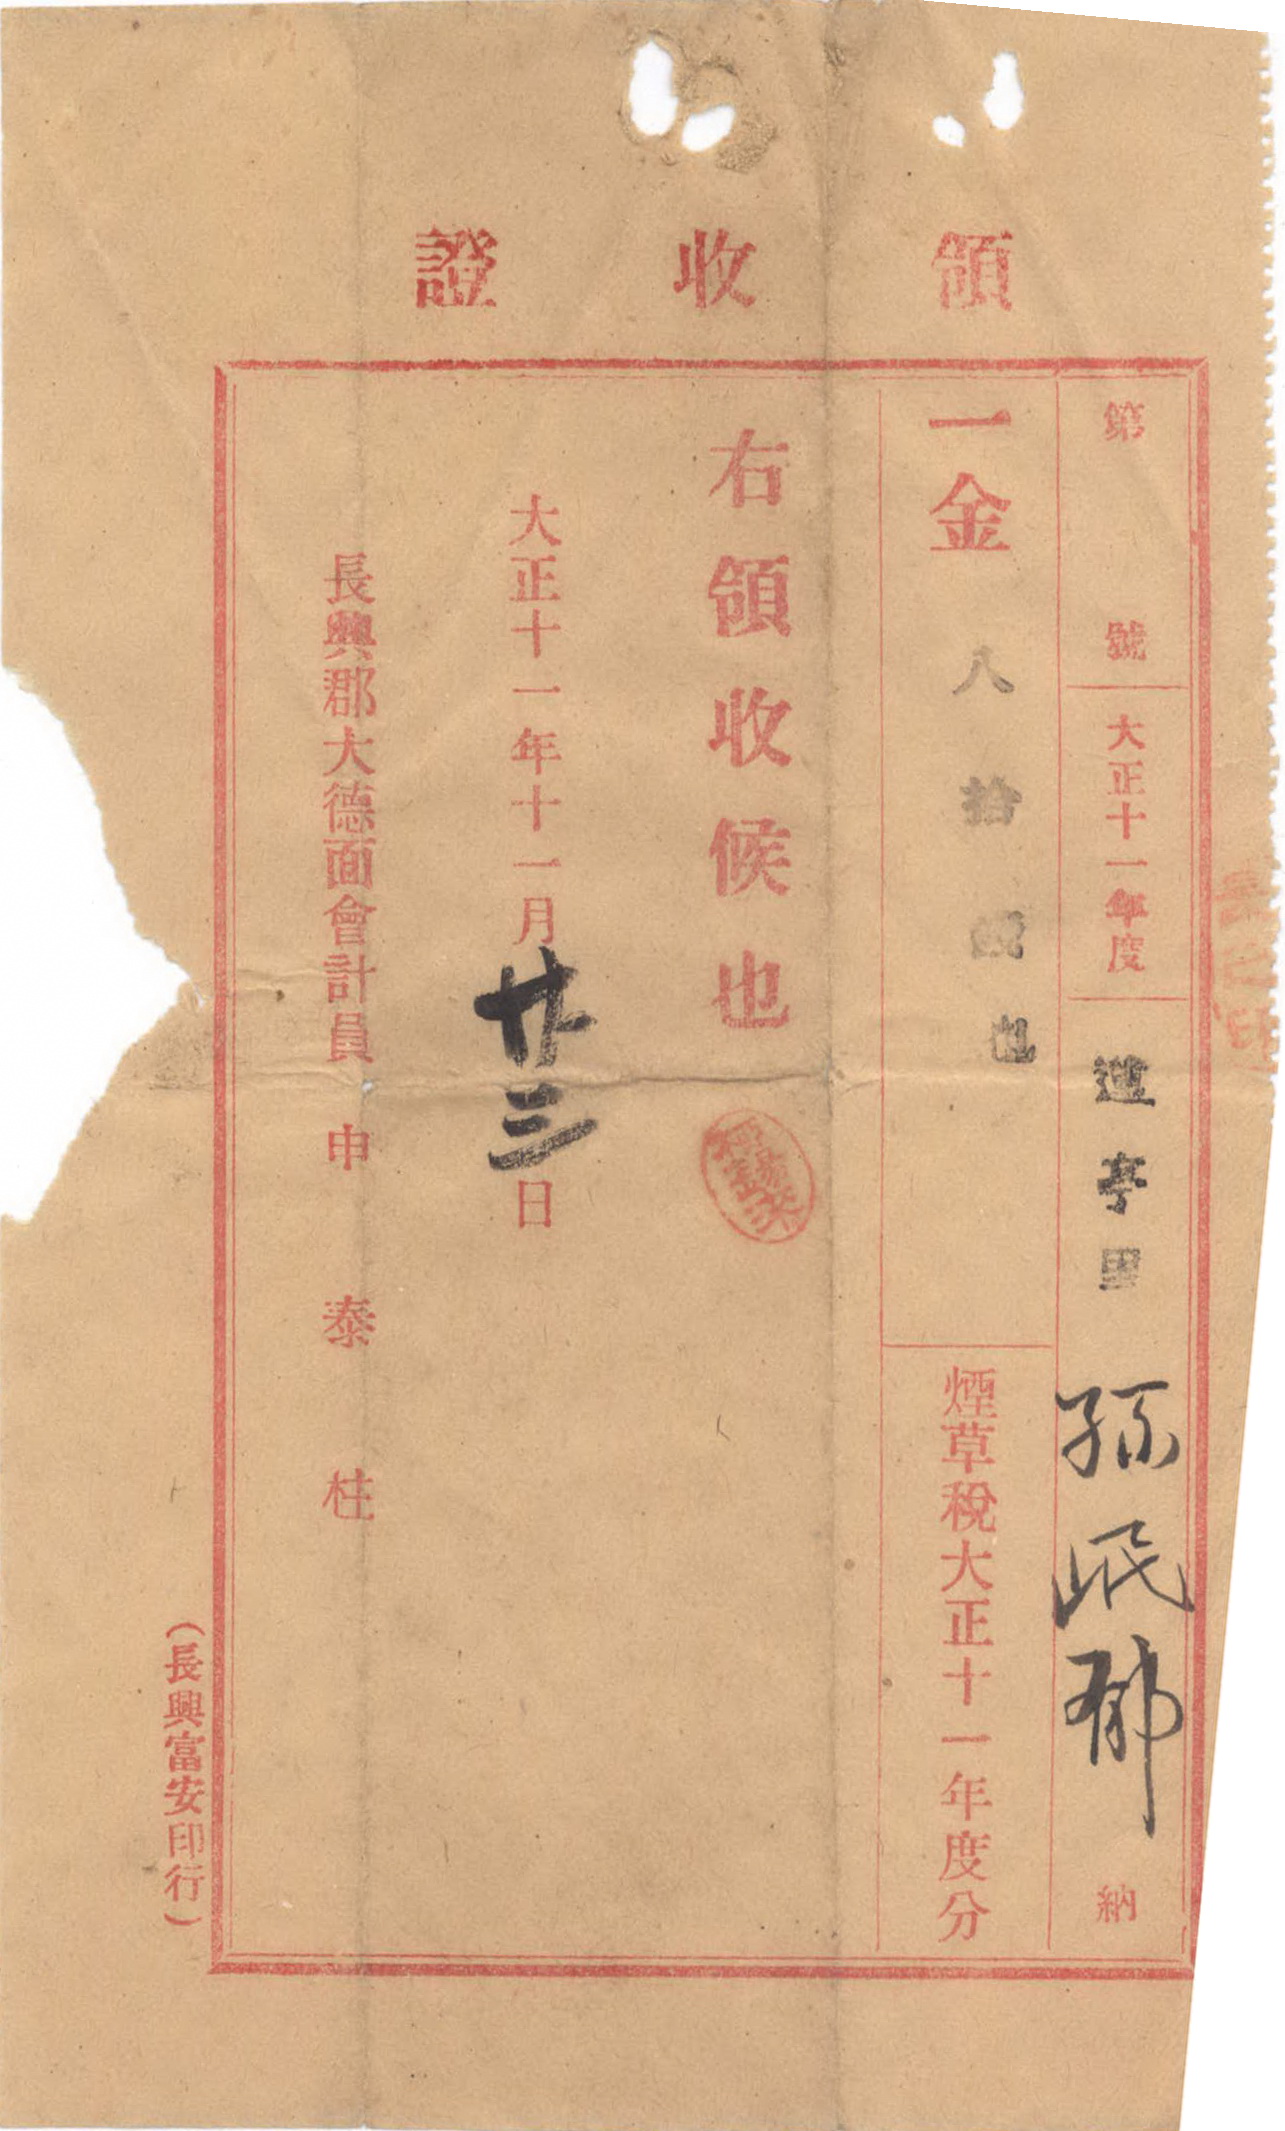 領收證
第 號 大正十一年度 蓮亭里 孫岷郁 納
一金 八拾錢也 煙草稅大正十一年度分
右領收候也
大正十一年十一月廿三日
長興郡大德面會計員 申泰柱
(長興富安印行)